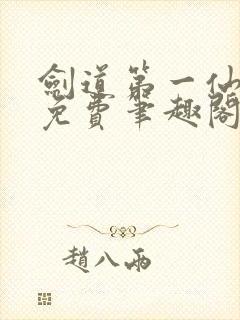 劍道第一仙
免費筆趣閣
趙八兩